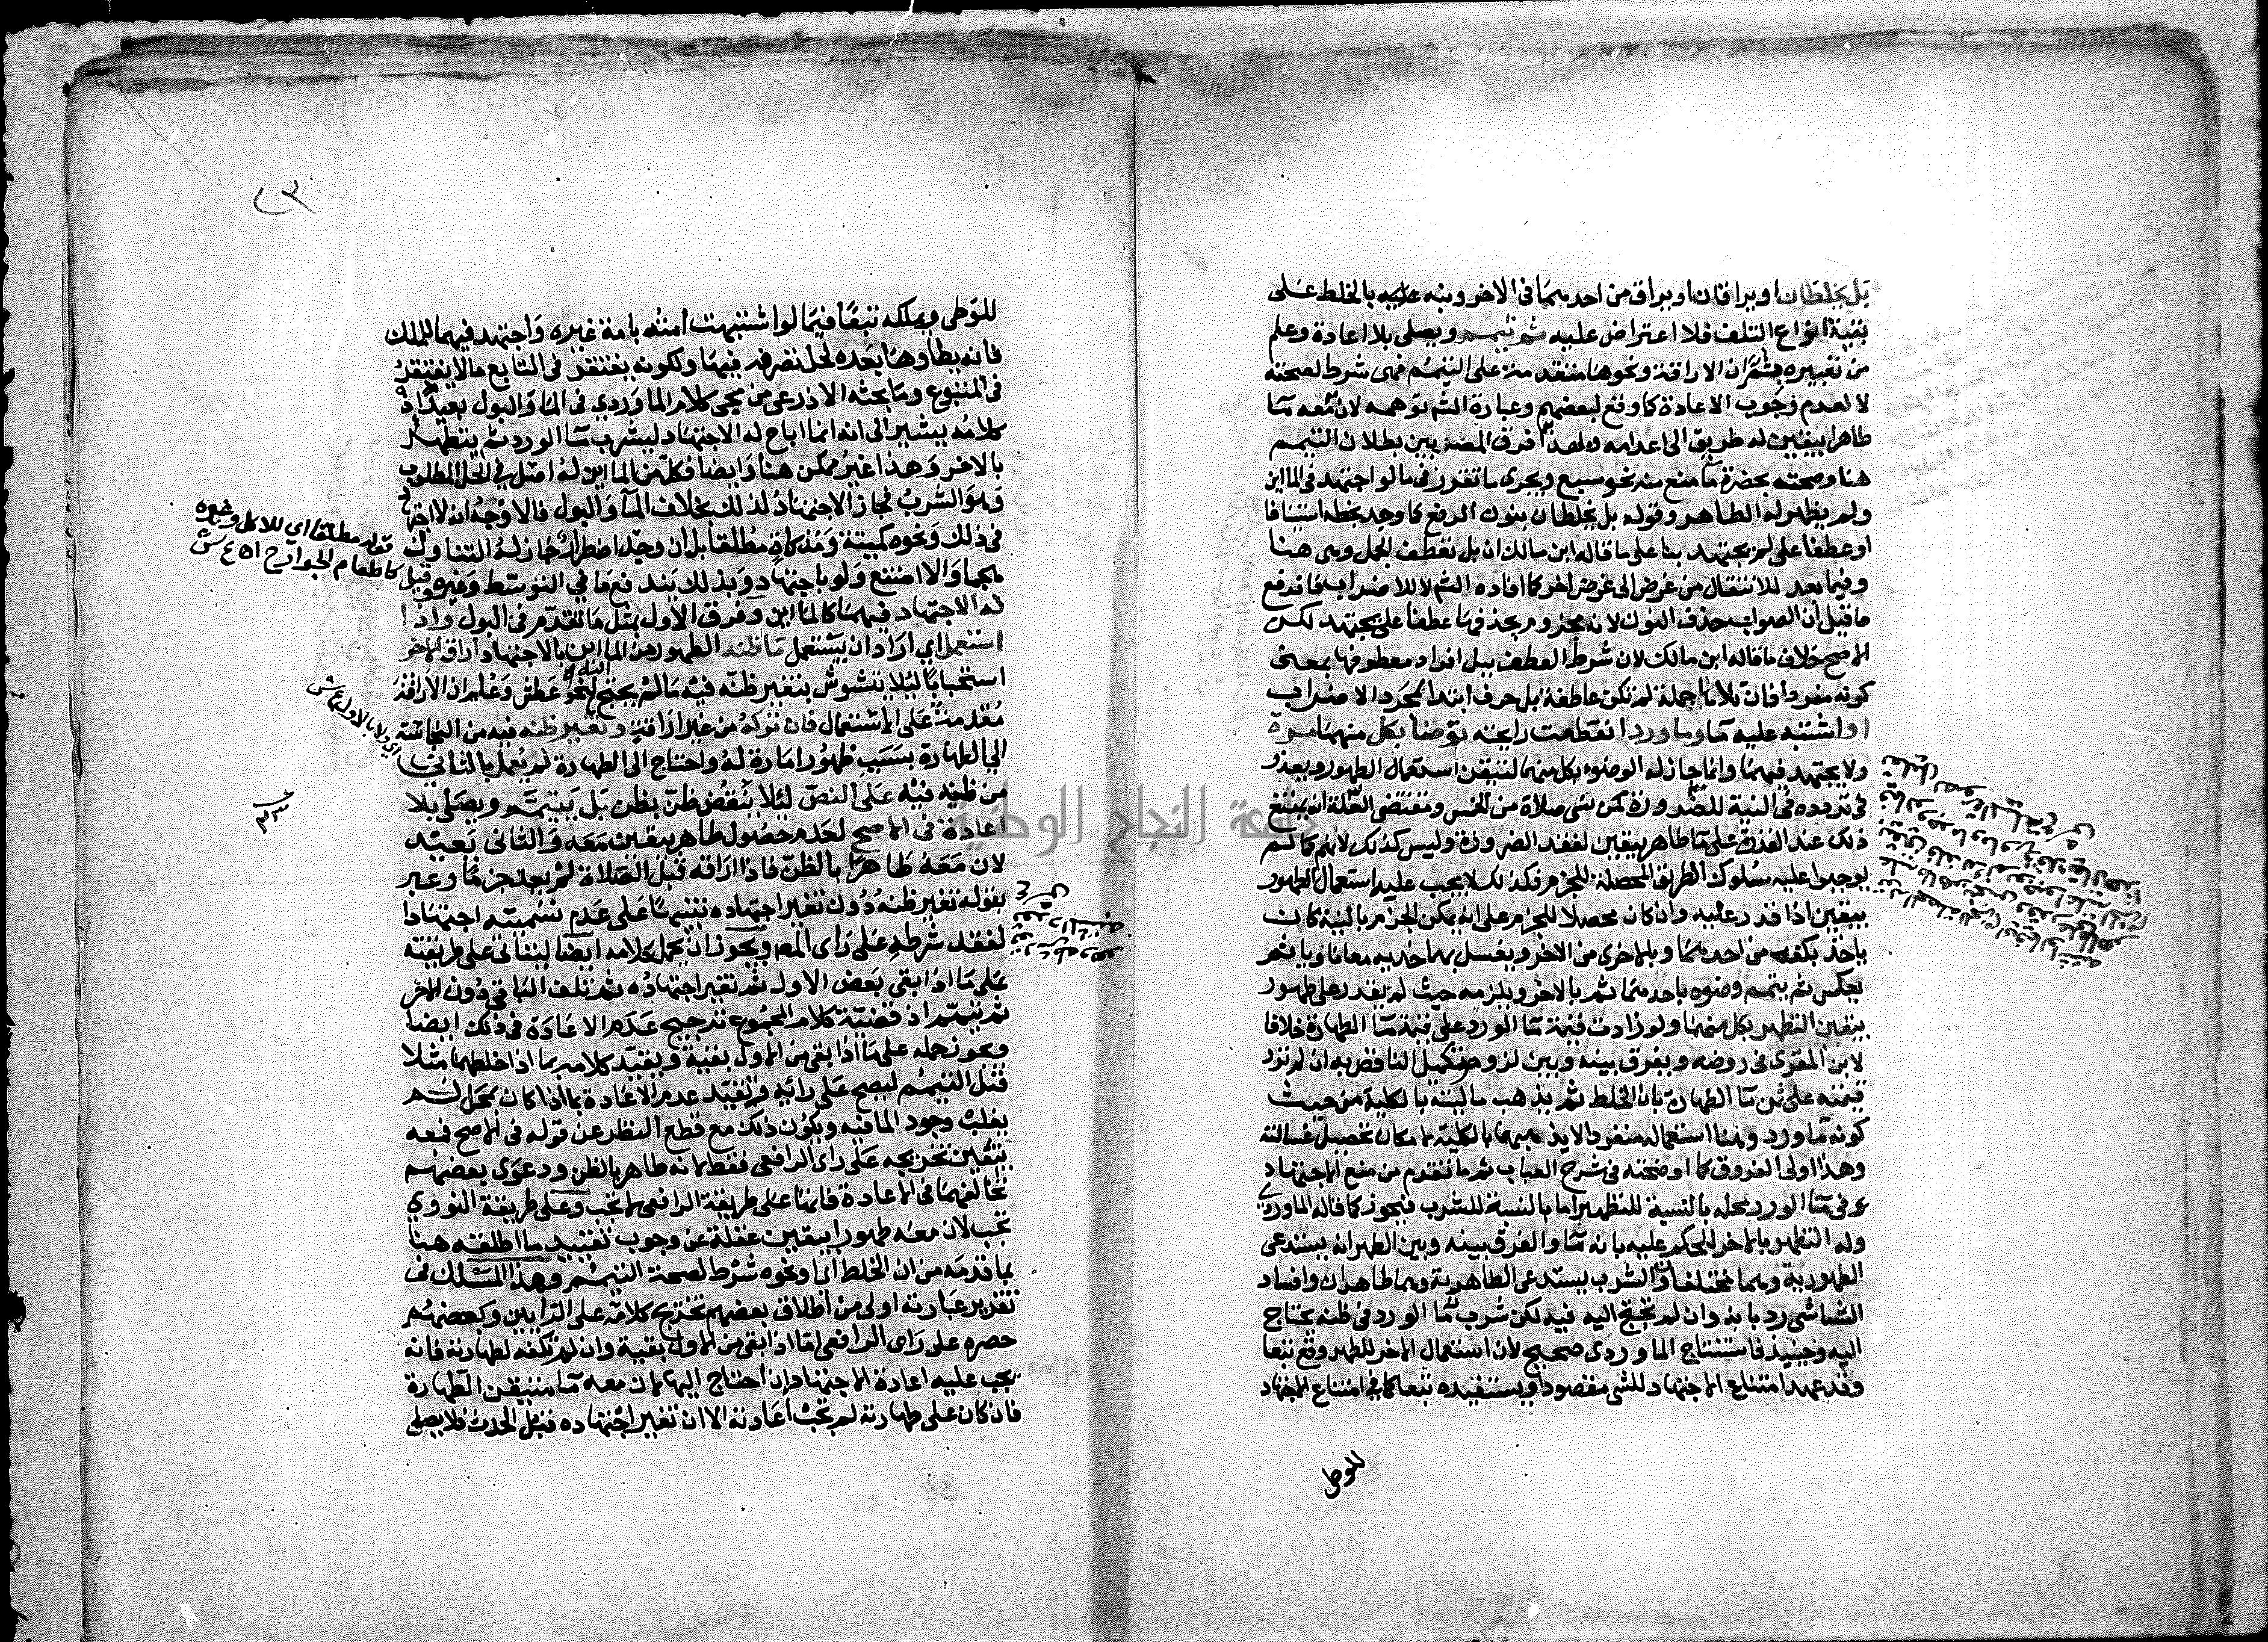 بل يخلطان او يراقان او يراق من احدهما في الاخر ونبه بالخلط على
بقية انواع التلف فلا اعتراض عليه ثم تيمم ويصلي بلا اعادة وعلم
من تعبيره بثم ان الاراقة ونحوها متقدمة على التيمم فهي شرط لصحته
لا لعدم وجوب الاعادة كما وقع لبعضهم وعبارة الشم توهمه لان معه ما
طاهرا بيقين له طريق الى اعدامه ولهذا فرق المص بين بطلان التيمم
هنا وصحته بحضرة ما منع منه نحو سبع ويجري ما تقرر في ما لو اجتهد في الماين
ولم يظهر له الطاهر وقوله بل يخلطان بنون الرفع كما وجد بخطه استينافا
او عطفا على لم يجتهد بنا على ما قاله ابن مالك ان بل تعطف الجمل وهي هنا
وفيما بعد للانتقال من غرض الى غرض اخر كما افاده الشم لا للاضراب فاندفع
ما قيل ان الصواب حذف النون لانه مجزوم بحذفها عطفا على يجتهد لكن
الاصح خلاف ما قاله ابن مالك لان شرط العطف ببل افراد معطوفها بمعنى
كونه مفردا فان تلاها جملة لم تكن عاطفة بل حرف ابتدا لمجرد الاضراب
او اشتبه عليه ما وما ورد انقطعت رايحته توضا بكل منهما مرة
ولا يجتهد فيهما وانما جاز له الوضوء بكل منهما لتيقن استعمال الطهور ويعذر
في تردده في النية للضرورة كمن نسي صلاة من الخمس ومقتضى العلة انه يمتنع
ذلك عند القدرة على ما طاهر بيقين لفقد الضرورة وليس كذلك لانهم كما لم
يوجبوا عليه سلوك الطريق المحصلة للجزم فكذلك لا يجب عليه استعمال الطهور
بيقين اذا قدر عليه وان كان محصلا للجزم على انه يمكن الجزم بالنية كان
ياخذ بكفه من احدهما وبالاخرى من الاخر ويغسل بهما خديه معا ناويا ثم
يعكس ثم يتمم وضوه باحدهما ثم بالاخر ويلزمه حيث لم يقدر على طهور
بيقين التطهر بكل منهما ولو زادت قيمة ما الورد على قيمة ما الطهارة خلافا
لابن المقري في روضه ويفرق بينه وبين لزوم تكميل الناقص به ان لم تزد
قيمته على ثمن ما الطهارة بان الخلط ثم يذهب ماليته بالكلية من حيث
كونه ما ورد وهنا استعماله منفردا لا يذهبها بالكلية لامكان تحصيل غسالته
وهذا اولى الفروق كما اوضحته في شرح العباب ثم ما تقدم من منع الاجتهاد
في ما الورد محله بالنسبة للتطهير اما بالنسبة للشرب فيجوز كما قاله الماوردي
وله التطهر بالاخر للحكم عليه بانه ما والفرق بينه وبين الطهر انه يستدعي
الطهورية وهما مختلفان والشرب يستدعي الطاهرية وهما طاهران وافساد
الشاشي رد بانه وان لم يحتج اليه فيه لكن شرب ما الورد في ظنه يحتاج
اليه وحينيذ فاستنتاج الماوردي صحيح لان استعمال الاخر للطهر وقع تبعا
وقد عهد امتناع الاجتهاد للشي مقصودا ويستفيده تبعا كما في امتناع الاجتهاد
للوطي
للوطي ويملكه تبعا فيما لو اشتبهت امته بامة غيره واجتهد فيهما للملك
فانه يطاوها بعده لحل تصرفه فيها ولكونه يغتفر في التابع ما لا يغتفر
في المتبوع وما بحثه الاذرعي من مجي كلام الماوردي في الما والبول بعيد اذ
كلامه يشير الى انه انما اباح له الاجتهاد ليشرب ما الورد ثم يتطهر
بالاخر وهذا غير ممكن هنا وايضا فكل من الماين له اصل في الحل المطلوب
وهو الشرب فجاز الاجتهاد لذلك بخلاف الما والبول فالاوجه ان لا اجتهاد
في ذلك ونحوه كميتة ومذكاة مطلقا بل ان وجد اضطرار جاز له التناول
هجما والا امتنع ولو باجتهاد وبذلك يندفع ما في التوسط وغيره وقيل
له الاجتهاد فيهما كالماين وفرق الاول بمثل ما تقدم في البول واذا
استعمل اي اراد ان يستعمل ما ظنه الطهور من الماين بالاجتهاد اراق الاخر
استحبابا ليلا يتشوش بتغير ظنه فيه ما لم يحتج اليه لنحو عطش وعلم ان الاراقة
مقدمة على الاستعمال فان تركه من غير اراقة وتغير ظنه فيه من النجاسة
الى الطهارة بسبب ظهور امارة له واحتاج الى الطهارة لم يعمل بالثاني
من ظنيه فيه على النص ليلا ينقض ظن بظن بل يتيمم ويصلي بلا
اعادة في الاصح لعدم حصول طاهر بيقين معه والثاني يعيد
لان معه طاهرا بالظن فاذا اراقه قبل الصلاة لم يعد جزما وعبر
بقوله تغير ظنه دون تغير اجتهاده تنبيها على عدم تسميته اجتهادا
لفقد شرطه على راي المص ويجوز ان يحمل كلامه ايضا ليتاتى على طريقته
على ما اذا بقي بعض الاول ثم تغير اجتهاده ثم تلف الباقي دون الاخر
ثم تيمم اذ قضية كلام المجموع ترجيح عدم الاعادة في ذلك ايضا
ويجوز حمله على ما اذا بقي من الاول بقية ويقيد كلامه بما اذا خلطهما مثلا
قبل التيمم ليصح على رايه وتقيد عدم الاعادة بما اذا كان بمحل لم
يغلب وجود الما فيه ويكون ذلك مع قطع النظر عن قوله في الاصح فمعه
يتعين تخريجه على راي الرافعي فقط لانه طاهر بالظن ودعوى بعضهم
تخالفهما في الاعادة فانها على طريقة الرافعي لا تجب وعلى طريقة النووي
تجب لان معه طهورا بيقين غفلة عن وجوب تقييد ما اطلقه هنا
بما قدمه من ان الخلط او نحوه شرط لصحة التيمم وهذا المسلك في
تقدير عبارته اولى من اطلاق بعضهم تخريج كلامه على الرايين وكبعضهم
حصره على راي الرافعي اما اذا بقي من الاول بقية وان لم تكفه لطهارته فانه
يجب عليه اعادة الاجتهاد ان احتاج اليها لان معه ما متيقن الطهارة
فان كان على طهارته لم تجب اعادته الا ان تغير اجتهاده قبل الحدث فلا يصلي
قوله مطلقا اي للاكل وغيره
كاطعام الجوارح اه ع ش
اي ولا بالاول ع ش
جامعة النجاح الوطنية